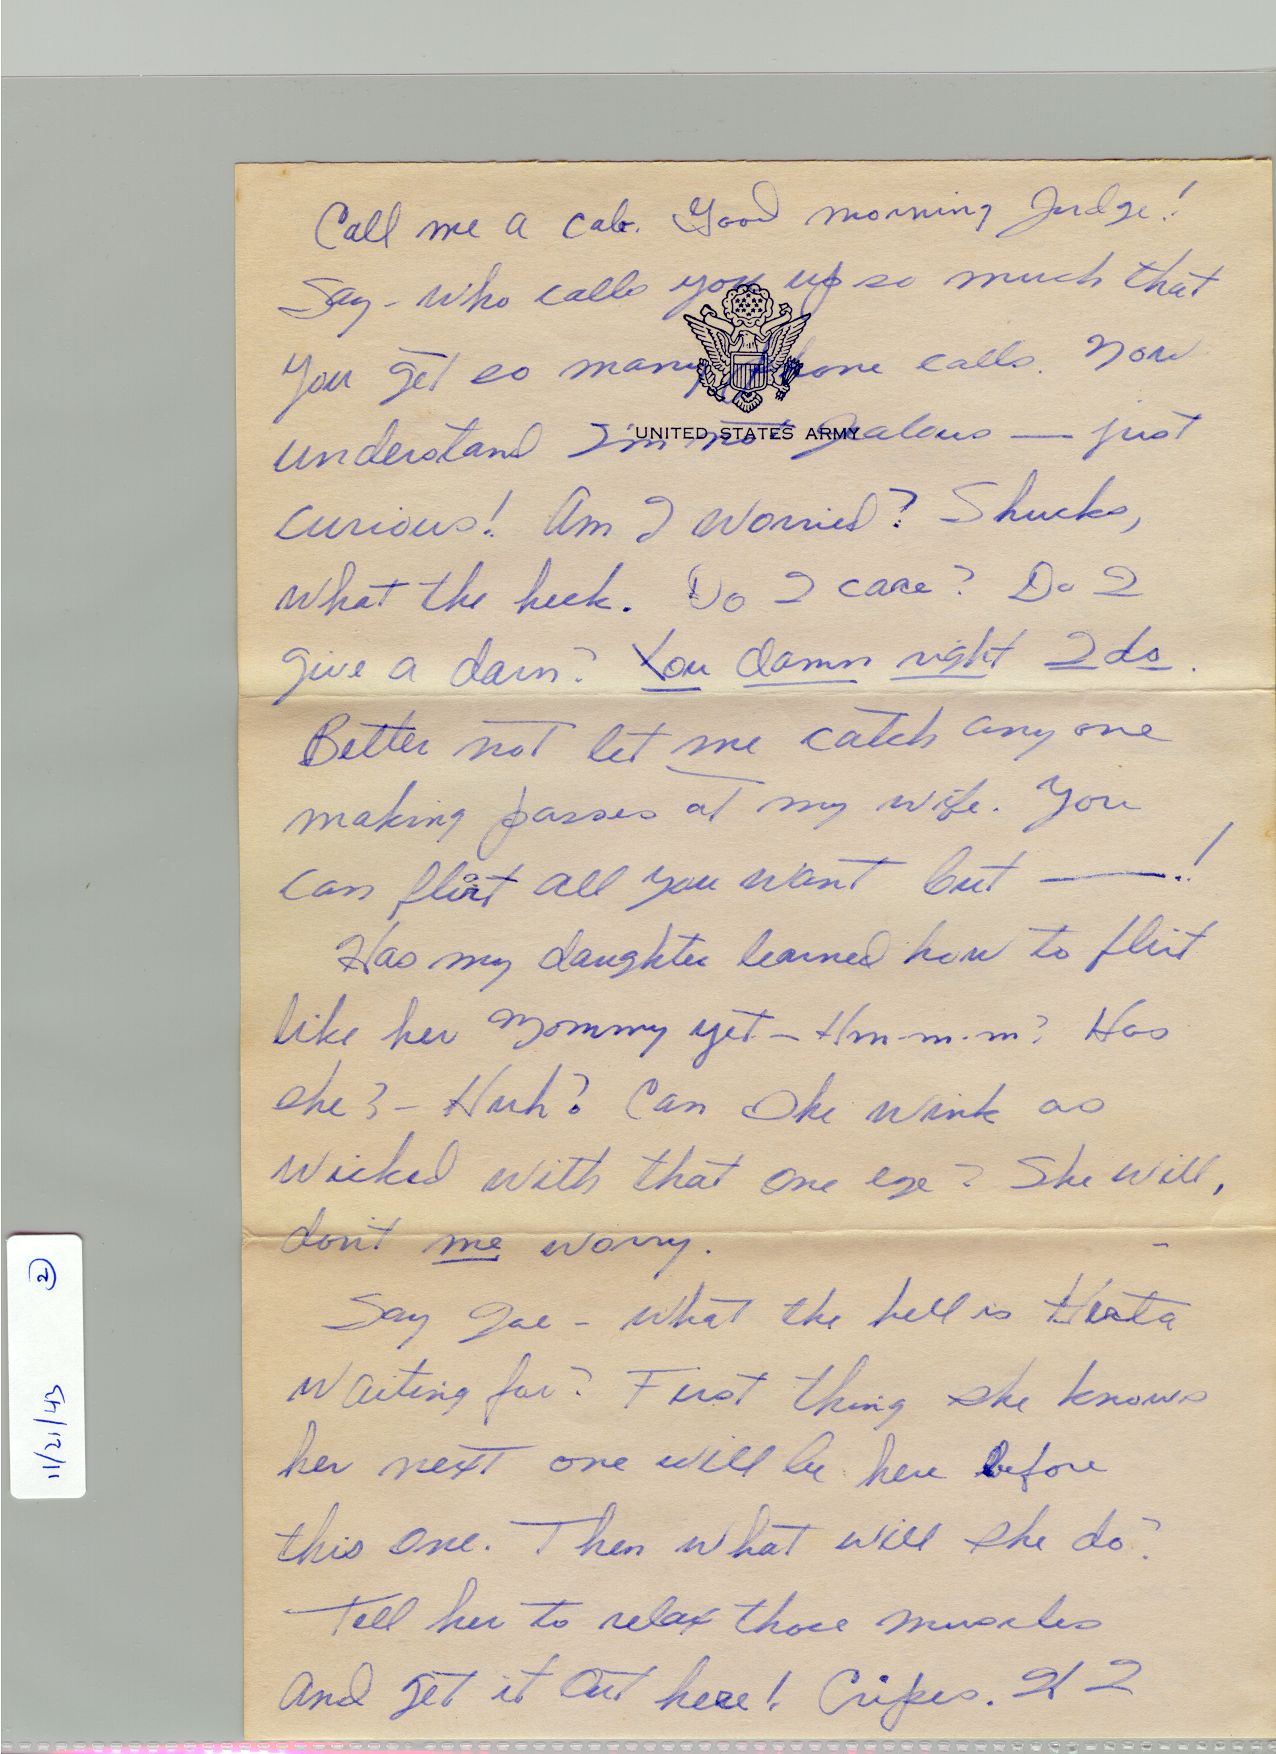 Call me a cab. Good morning Judge!
Say - who calls you up so much that
you get so many phone calls. Now
UNITED STATES ARMY
understand I'm not jealous — just
curious! Am I worried? Shucks,
what the heck. Do I care? Do I
give a darn? You damn right I do.
Better not let me catch anyone
making passes at my wife. You
can flirt all you want but —!
Has my daughter learned how to flirt
like her Mommy yet - Hm-m-m? Has
she? - Huh? Can she wink as
wicked with that one eye? She will,
don't me worry.
Say - what the hell is
waiting for? First thing she knows
her next one will be here before
this one. Then what will she do?
Tell her to relax those muscles
and get it out here! Cripes. If I
11/21/43 ②